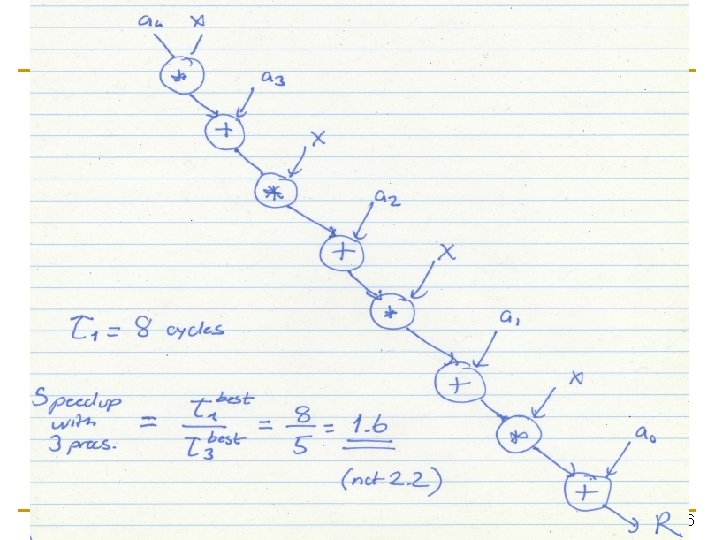 a₄ x
*
a₃
+
x
*
a₂
+
x
*
a₁
T₁ = 8 cycles
+
x
Speedup with 3 procs. = T₁ᵇᵉˢᵗ / T₃ᵇᵉˢᵗ = 8 / 5 = 1.6
*
a₀
(not 2.2)
+
R
6